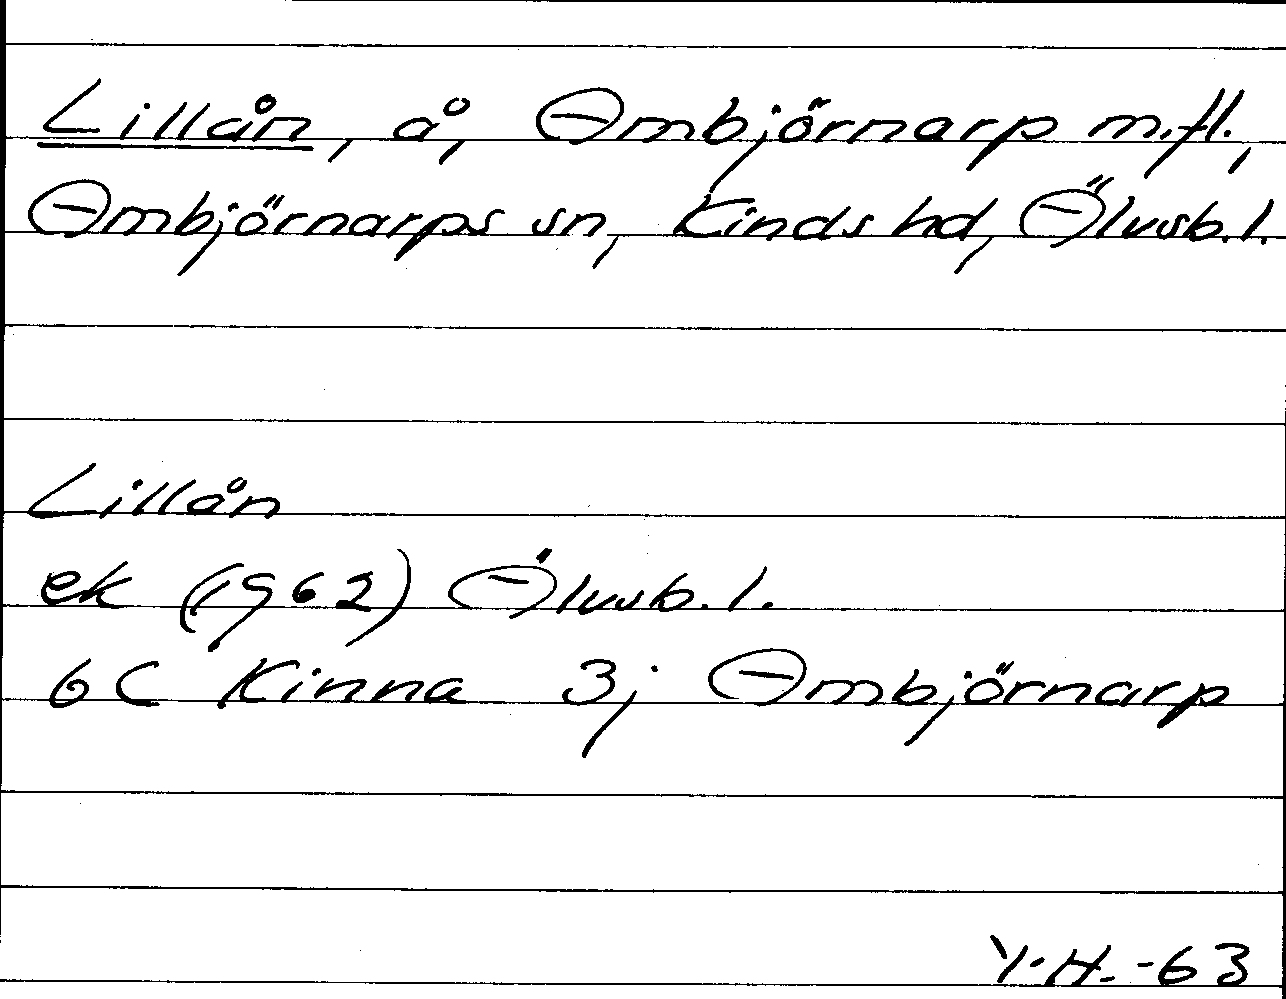 Lillån, å, Ambjörnarp m.fl.,
Ambjörnarps sn, Kinds hd, Älvsb.l.
Lillån
ek (1962) Älvsb.l.
6C Kinna 3j Ambjörnarp
Y.H.-63